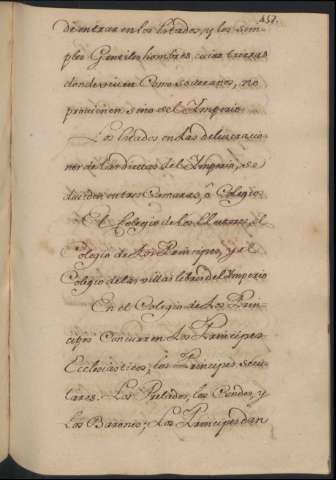 457.
de entrar en los Estados, y los sim-
ples Gentiles hombres cuias tierras
donde viven Como soberanos, no
provienen sino del Imperio
Los Estados en las deliveracio
nes de las dietas del Imperio, se
dividen en tres Camaras, ò Colegios
El Colegio de los Electores, el
Colegio de los Principes, y el
Colegio de las villas libres del Imperio
En el Colegio de los Prin-
cipes Concurren los Principes
Ecclesiasticos, los Principes secu-
lares. Los Prelados, los Condes, y
los Barones; los Principes dan